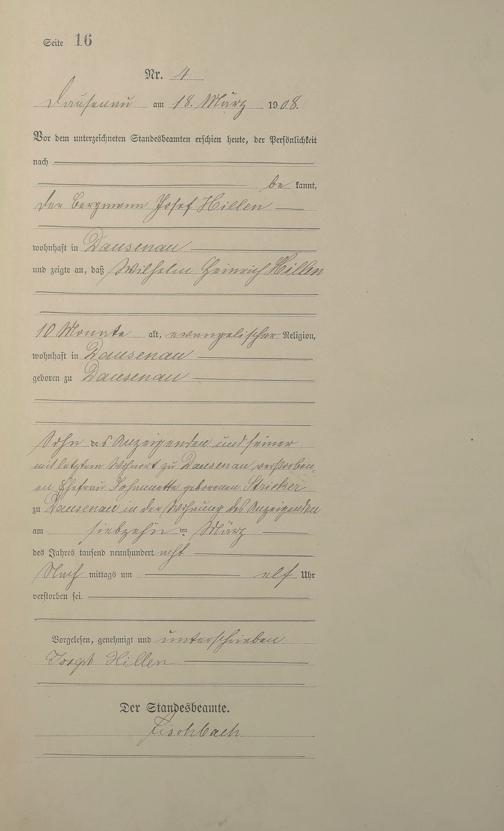 Seite 16
Nr. 4
Dausenau am 18. März 1908.
Vor dem unterzeichneten Standesbeamten erschien heute, der Persönlichkeit
nach
be kannt,
der Bergmann Josef Hillen
wohnhaft in Dausenau
und zeigte an, daß Wilhelm Heinrich Hillen
10 Monate alt, evangelischer Religion,
wohnhaft in Dausenau
geboren zu Dausenau
Sohn des Anzeigenden und seiner
mit letztem Wohnort zu Dausenau verstorben
en Ehefrau Johannette geborenen
zu Dausenau in der Wohnung des Anzeigenden
am siebzehnten März
des Jahres tausend neunhundert acht
Nach mittags um elf Uhr
verstorben sei.
Vorgelesen, genehmigt und unterschrieben
Joseph Hillen
Der Standesbeamte.
Fischbach